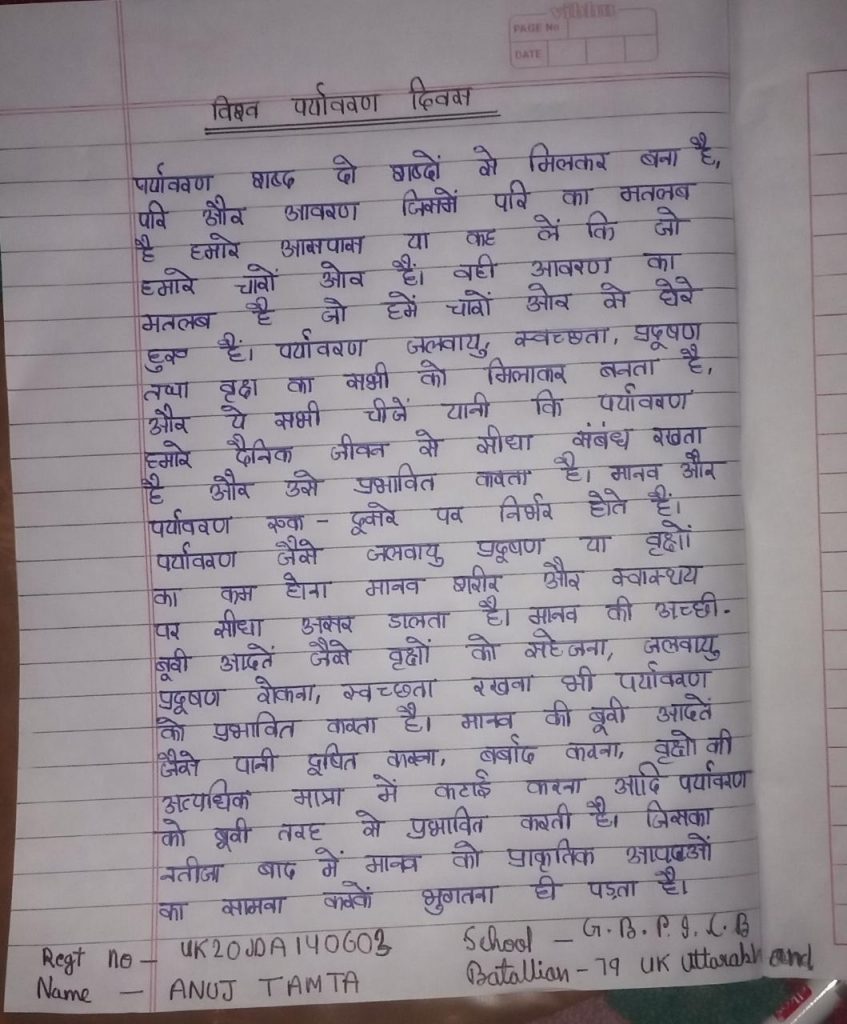 PAGE No
DATE
विश्व पर्यावरण दिवस
पर्यावरण शब्द दो शब्दों से मिलकर बना है,
परि और आवरण जिसमें परि का मतलब
है हमारे आसपास या कह लें कि जो
हमारे चारों ओर है। वही आवरण का
मतलब है जो हमें चारों ओर से घेरे
हुए हैं। पर्यावरण जलवायु, स्वच्छता, प्रदूषण
तथा वृक्ष का सभी को मिलाकर बनता है,
और ये सभी चीजें यानी कि पर्यावरण
हमारे दैनिक जीवन से सीधा संबंध रखता
है और उसे प्रभावित करता है। मानव और
पर्यावरण एक - दूसरे पर निर्भर होते हैं।
पर्यावरण जैसे जलवायु प्रदूषण या वृक्षों
का कम होना मानव शरीर और स्वास्थय
पर सीधा असर डालता है। मानव की अच्छी -
बूरी आदतें जैसे वृक्षों को सहेजना, जलवायु
प्रदूषण रोकना, स्वच्छता रखना भी पर्यावरण
को प्रभावित करता है। मानव की बूरी आदतें
जैसे पानी दूषित करना, बर्बाद करना, वृक्षो की
अत्यधिक मात्रा में कटाई करना आदि पर्यावरण
को बूरी तरह से प्रभावित करती है। जिसका
नतीजा बाद में मानव को प्राकृतिक आपदाओं
का सामना करके भुगतना ही पड़ता है।
Regt no - UK20JDA140603 School - G.B.P.I.C.B
Name - ANUJ TAMTA Batallian - 79 UK Uttarakhand